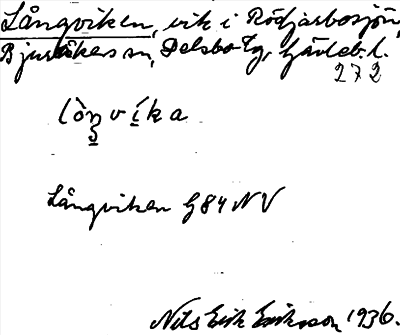 Långviken, vik i Rödjarbosjön,
Bjuråkers sn, Delsbo tg, Gävleb. l.
272
lòŋvíka
Långviken G84 NV
Nils Erik Eriksson 1936.